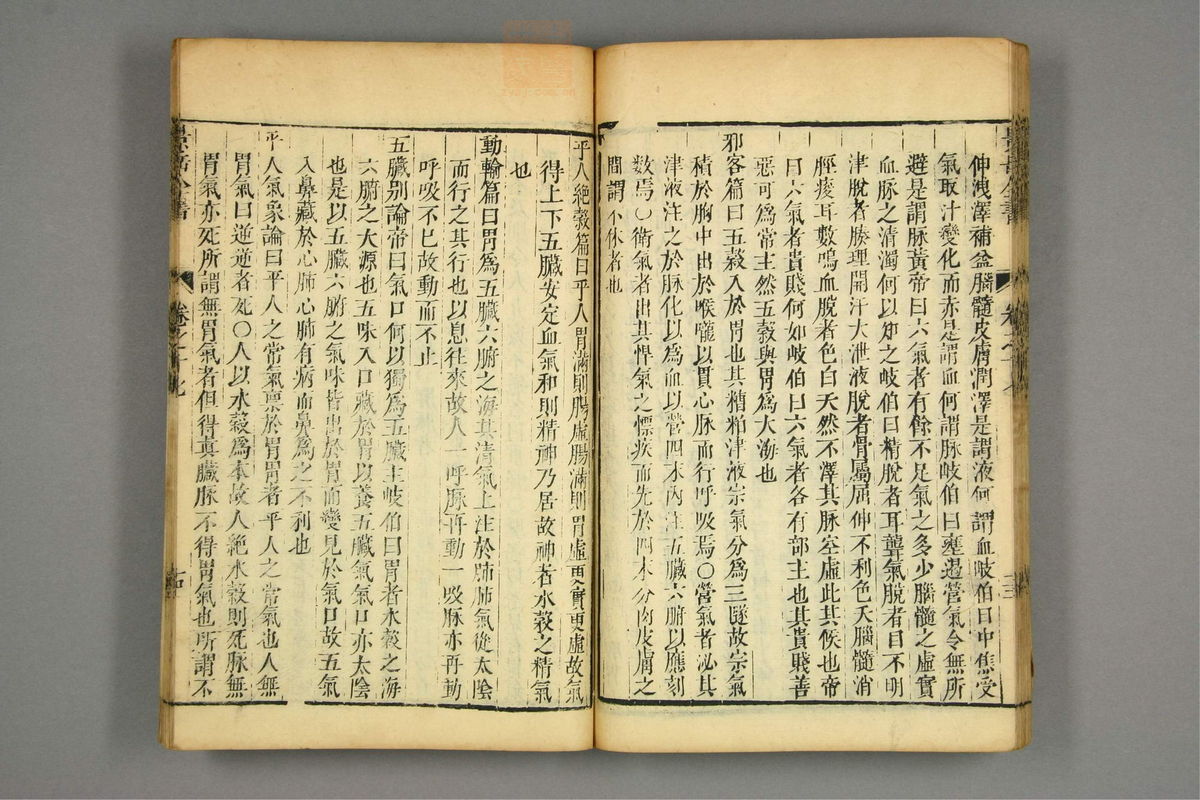 伸洩澤補益腦髓皮膚潤澤是謂液何謂血岐伯曰中焦受
氣取汁變化而赤是謂血何謂脉岐伯曰壅遏營氣令無所
避是謂脉黃帝曰六氣者有餘不足氣之多少腦髓之虛實
血脉之清濁何以知之岐伯曰精脫者耳聾氣脫者目不明
津脫者腠理開汗大泄液脫者骨屬屈伸不利色夭腦髓消
脛痠耳數鳴血脫者色白夭然不澤其脉空虛此其候也帝
曰六氣者貴賤何如岐伯曰六氣者各有部主也其貴賤善
惡可爲常主然五穀與胃爲大海也
邪客篇曰五穀入於胃也其糟粕津液宗氣分爲三隧故宗氣
積於胸中出於喉嚨以貫心脉而行呼吸焉○營氣者泌其
津液注之於脉化以爲血以營四末內注五臟六腑以應刻
数焉○衛氣者出其悍氣之慓疾而先於四末分肉皮膚之
間謂不休者也
平人絕穀篇曰平人胃滿則腸虛腸滿則胃虛更實更虛故氣
得上下五臟安定血氣和則精神乃居故神者水穀之精氣
也
動輸篇曰胃爲五臟六腑之海其清氣上注於肺肺氣從太陰
而行之其行也以息往來故人一呼脉再動一吸脉亦再動
呼吸不已故動而不止
五臟别論帝曰氣口何以獨爲五臟主岐伯曰胃者水穀之海
六腑之大源也五味入口藏於胃以養五臟氣氣口亦太陰
也是以五臟六腑之氣味皆出於胃而變見於氣口故五氣
入鼻藏於心肺心肺有病而鼻爲之不利也
平人氣象論曰平人之常氣禀於胃胃者平人之常氣也人無
胃氣曰逆逆者死○人以水穀爲本故人絕水穀則死脉無
胃氣亦死所謂無胃氣者但得真臟脉不得胃氣也所謂不